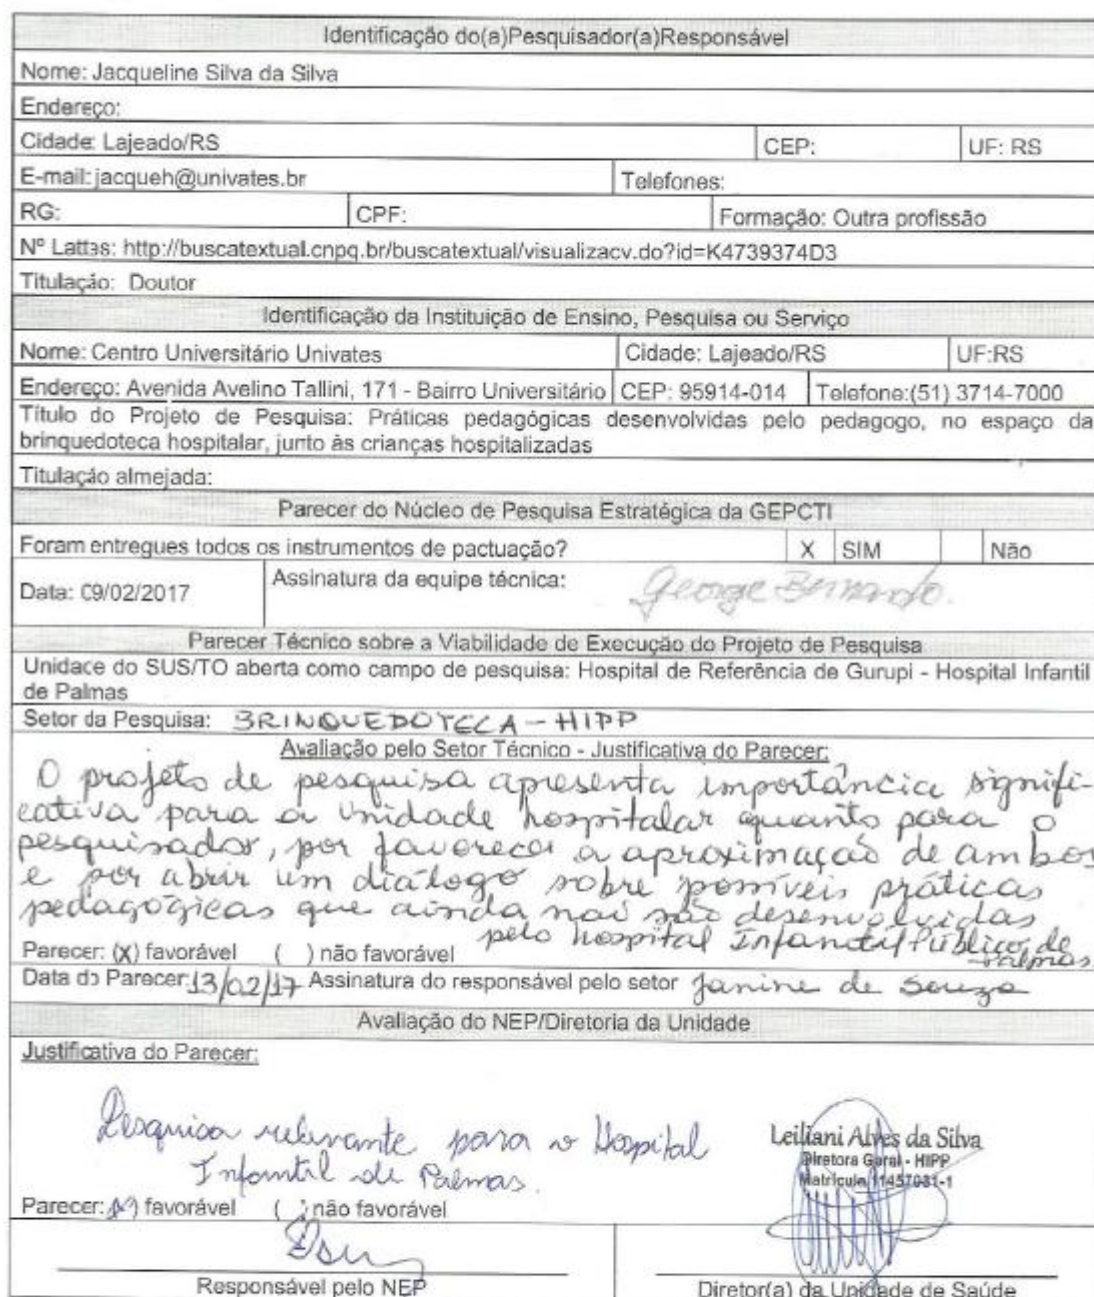 Identificação do(a)Pesquisador(a)Responsável
Nome: Jacqueline Silva da Silva
Endereço:
Cidade: Lajeado/RS CEP: UF: RS
E-mail: jacqueh@univates.br Telefones:
RG: CPF: Formação: Outra profissão
Nº Lattes: http://buscatextual.cnpq.br/buscatextual/visualizacv.do?id=K4739374D3
Titulação: Doutor
Identificação da Instituição de Ensino, Pesquisa ou Serviço
Nome: Centro Universitário Univates Cidade: Lajeado/RS UF:RS
Endereço: Avenida Avelino Tallini, 171 - Bairro Universitário CEP: 95914-014 Telefone:(51) 3714-7000
Título do Projeto de Pesquisa: Práticas pedagógicas desenvolvidas pelo pedagogo, no espaço da
brinquedoteca hospitalar, junto às crianças hospitalizadas
Titulação almejada:
Parecer do Núcleo de Pesquisa Estratégica da GEPCTI
Foram entregues todos os instrumentos de pactuação? X SIM Não
Data: 09/02/2017 Assinatura da equipe técnica: George Bernardo.
Parecer Técnico sobre a Viabilidade de Execução do Projeto de Pesquisa
Unidade do SUS/TO aberta como campo de pesquisa: Hospital de Referência de Gurupi - Hospital Infantil
de Palmas
Setor da Pesquisa: BRINQUEDOTECA - HIPP
Avaliação pelo Setor Técnico - Justificativa do Parecer:
O projeto de pesquisa apresenta importância signifi-
cativa para a unidade hospitalar quanto para o
pesquisador, por favorecer a aproximação de ambos
e por abrir um diálogo sobre possíveis práticas
pedagógicas que ainda não são desenvolvidas
pelo hospital Infantil Público de
Palmas
Parecer: (X) favorável ( ) não favorável
Data do Parecer: 13/02/17 Assinatura do responsável pelo setor Janine de Souza
Avaliação do NEP/Diretoria da Unidade
Justificativa do Parecer:
Pesquisa relevante para o Hospital
Infantil de Palmas.
Leiliani Alves da Silva
Diretora Geral - HIPP
Matrícula 11457031-1
Parecer: (X) favorável ( ) não favorável
Responsável pelo NEP Diretor(a) da Unidade de Saúde